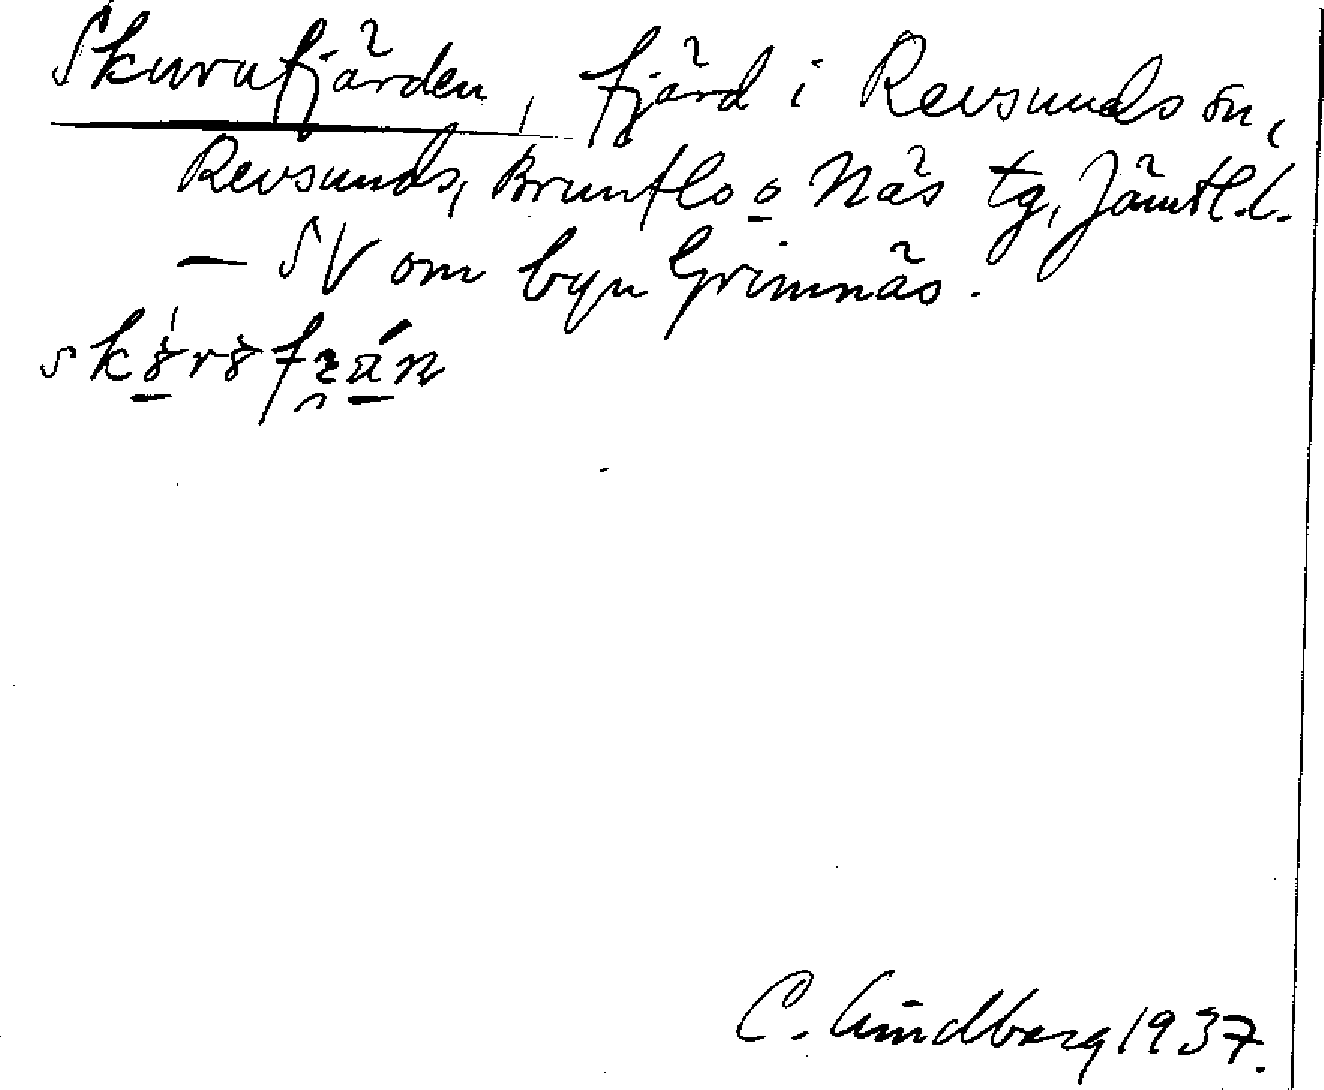 Skurufjärden, fjärd i Revsundssön,
Revsunds, Brunflo o Näs tg, Jämtl.l.
— SV om byn Grimnäs.
C. Lindberg 1937.